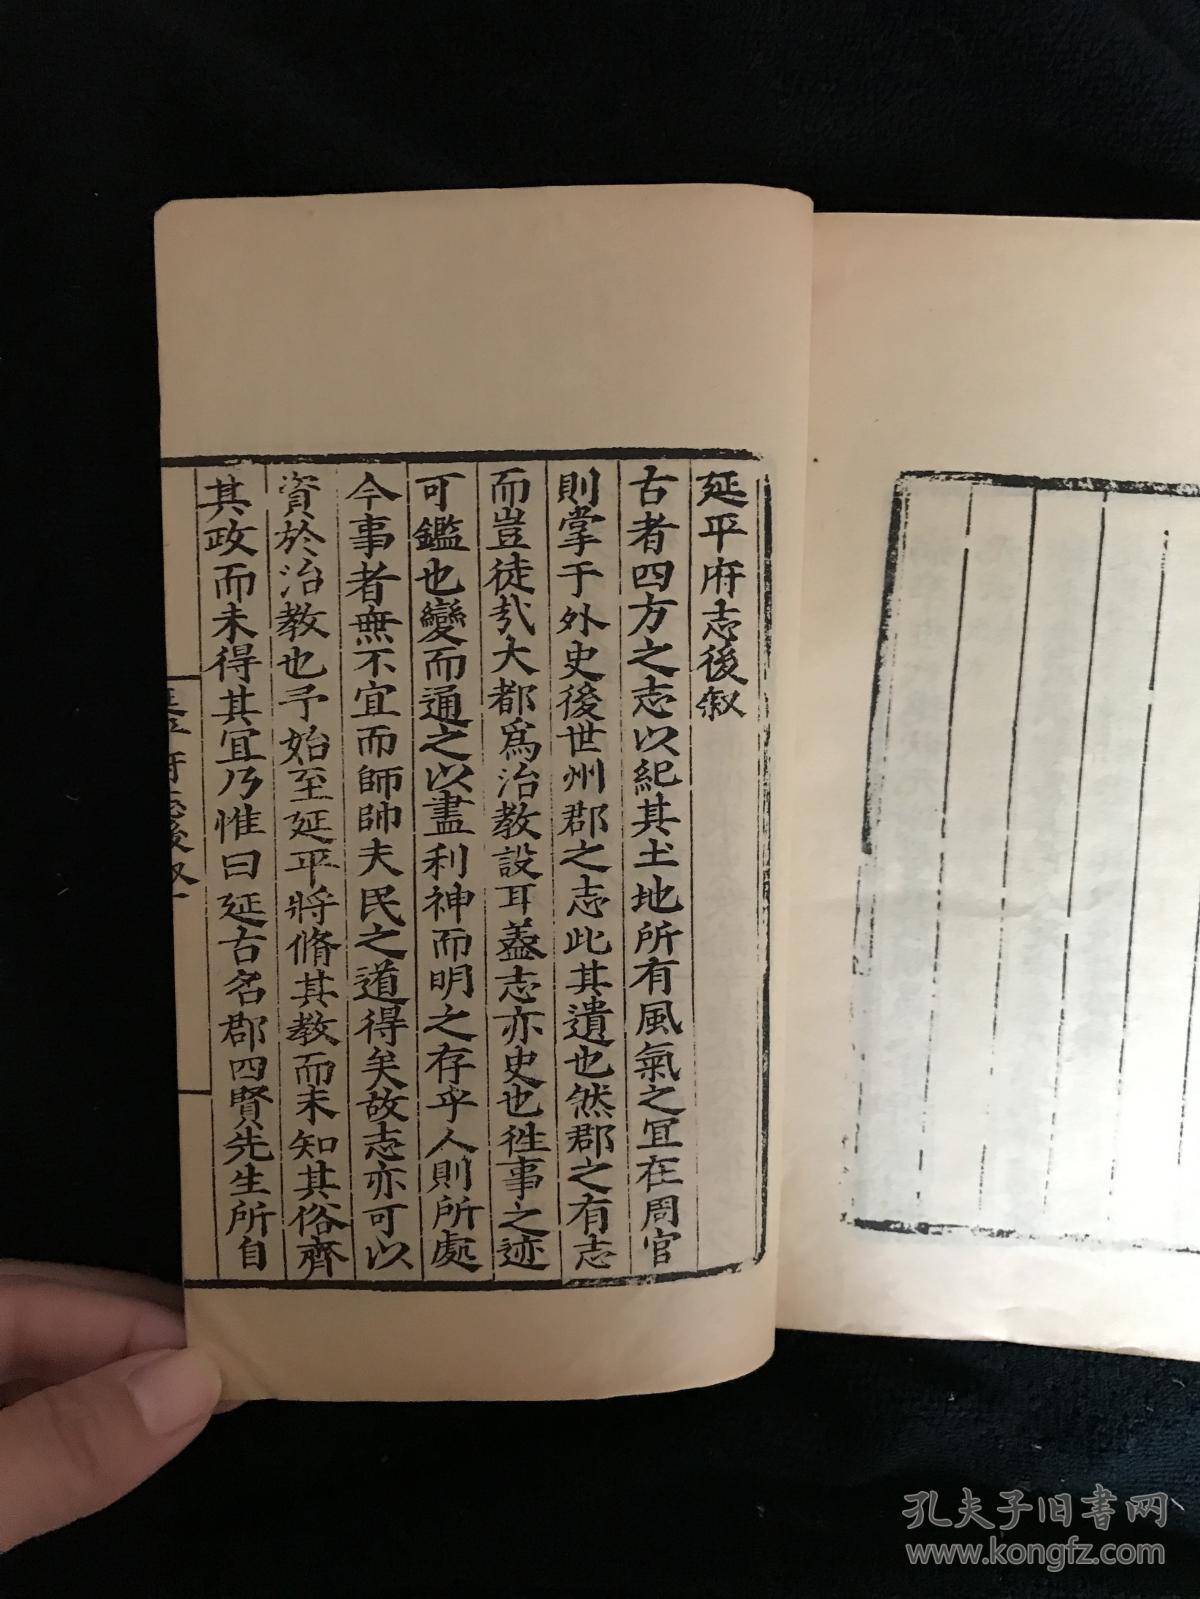 延平府志後叙
古者四方之志以紀其土地所有風氣之冝在周官
則掌于外史後世州郡之志此其遺也然郡之有志
而豈徒㢤大都爲治教設耳葢志亦史也徃事之迹
可鑑也變而通之以盡利神而明之存乎人則所處
今事者無不宜而師帥夫民之道得矣故志亦可以
資於治教也予始至延平將脩其教而未知其俗齊
其政而未得其冝乃惟曰延古名郡四賢先生所自
延平府志後叙一
孔夫子旧書网
www.kongfz.com